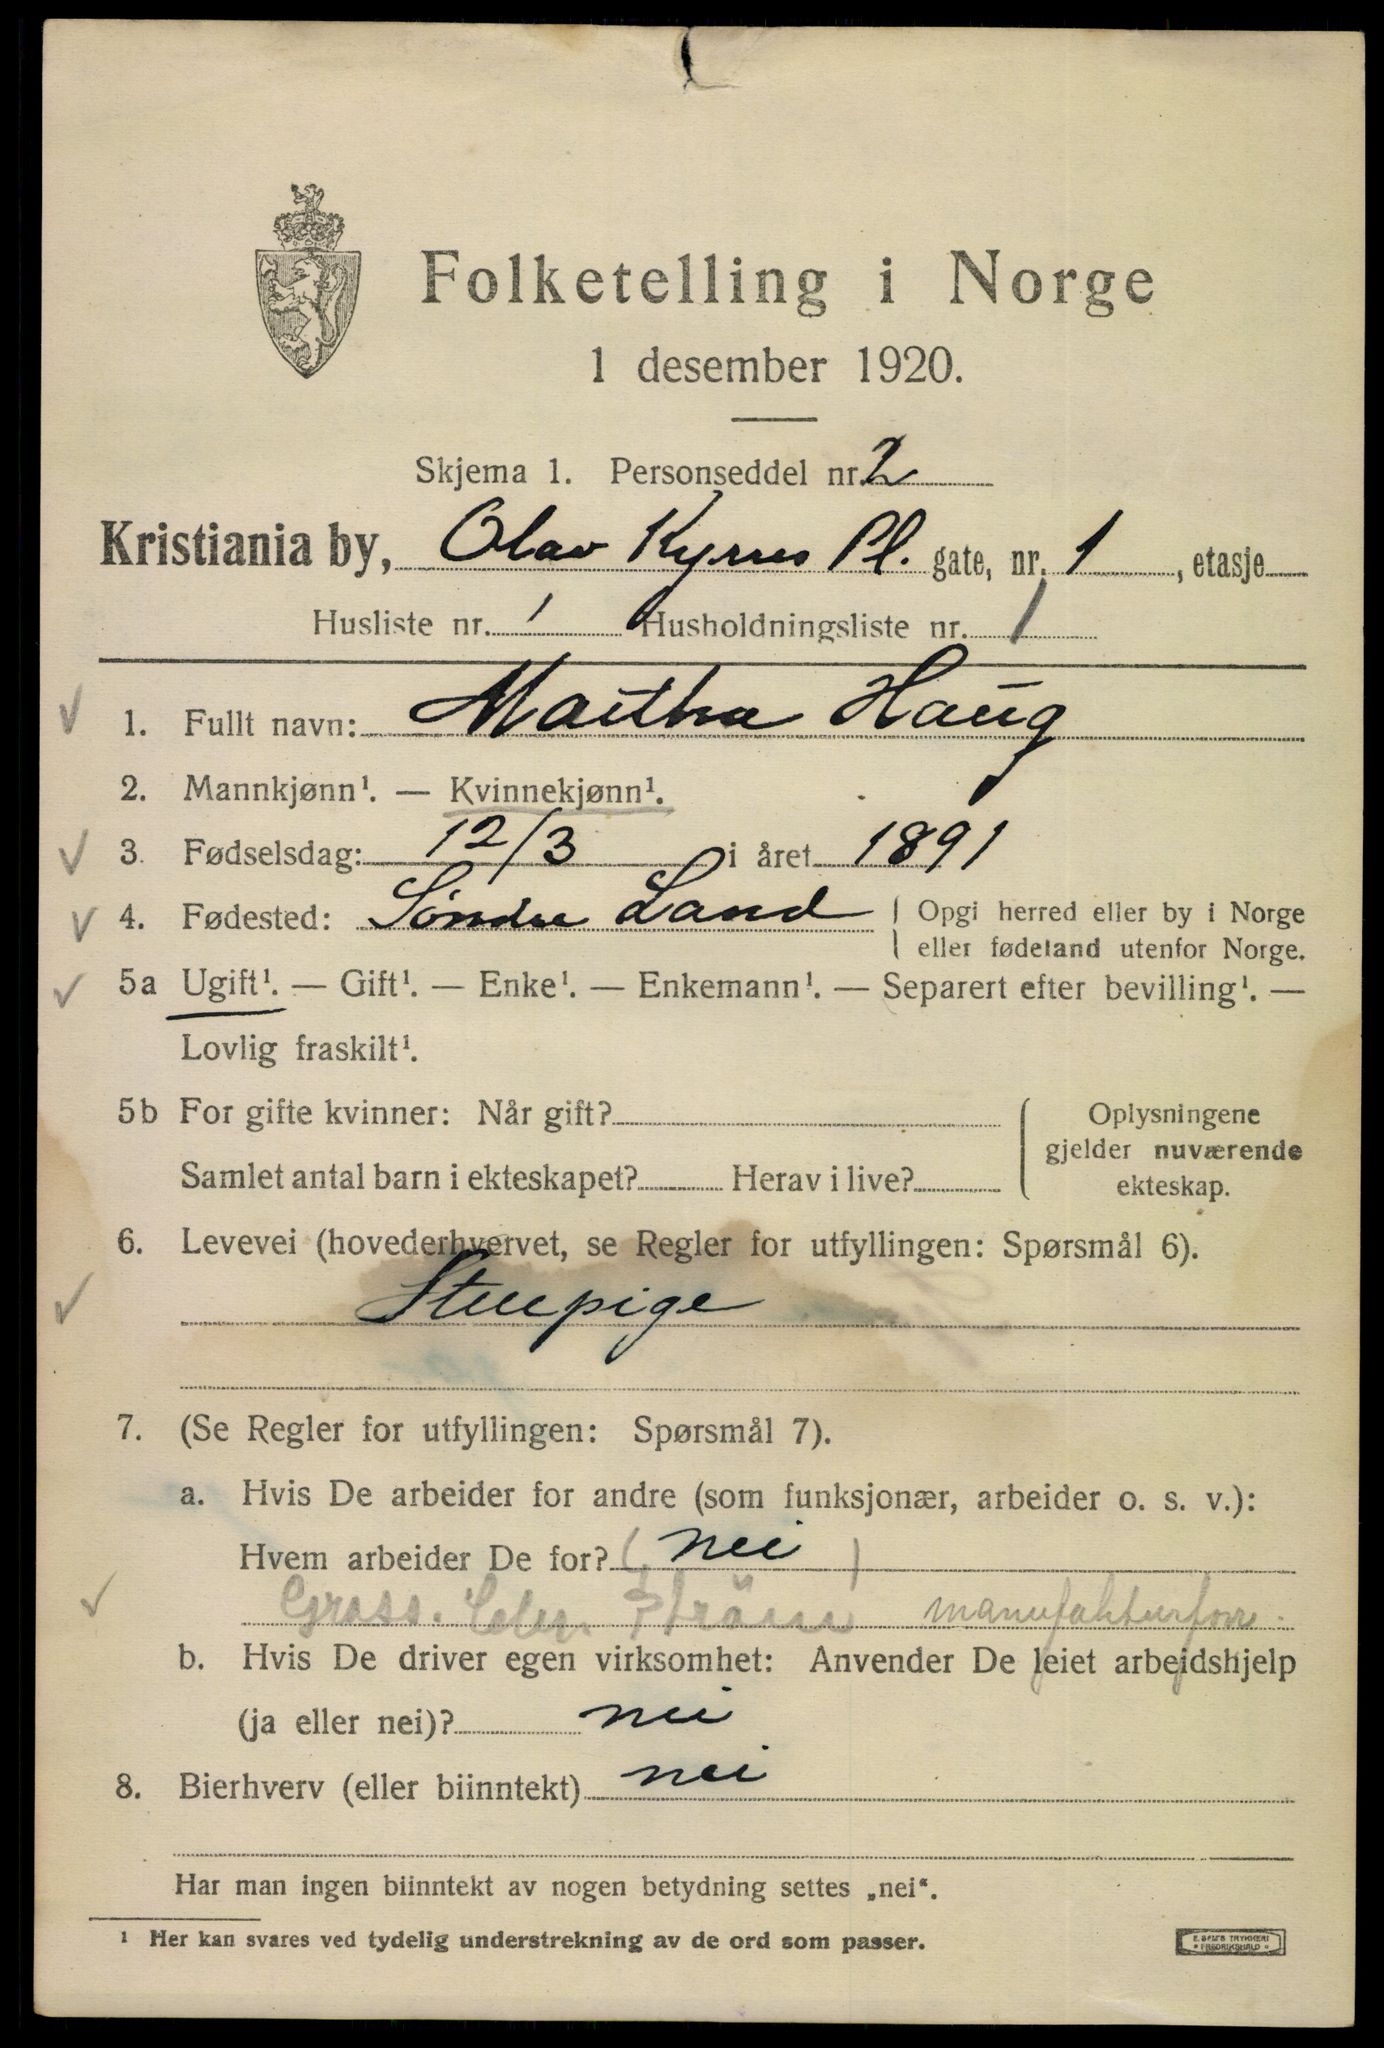 Folketelling i Norge
1 desember 1920.
Skjema 1. Personseddel nr. 2
Kristiania by, Olav Kyrres Pl. gate, nr. 1, etasje
Husliste nr. 1 Husholdningsliste nr. 1
1. Fullt navn: Martha Haug
2. Mannkjønn¹. — Kvinnekjønn¹.
3. Fødselsdag: 12/3 i året 1891
4. Fødested: Søndre Land
Opgi herred eller by i Norge
eller fødeland utenfor Norge.
5a Ugift¹. — Gift¹. — Enke¹. — Enkemann¹. — Separert efter bevilling¹. —
Lovlig fraskilt¹.
5b For gifte kvinner: Når gift?
Samlet antal barn i ekteskapet? Herav i live?
Oplysningene
gjelder nuværende
ekteskap.
6. Levevei (hovederhvervet, se Regler for utfyllingen: Spørsmål 6).
Stuepige
7. (Se Regler for utfyllingen: Spørsmål 7).
a. Hvis De arbeider for andre (som funksjonær, arbeider o. s. v.):
Hvem arbeider De for? (nei)
Gross. Strøm manufakturforr.
b. Hvis De driver egen virksomhet: Anvender De leiet arbeidshjelp
(ja eller nei)? nei
8. Bierhverv (eller biinntekt) nei
Har man ingen biinntekt av nogen betydning settes „nei“.
¹ Her kan svares ved tydelig understrekning av de ord som passer.
E. SEMS TRYKKERI
FREDRIKSHALD